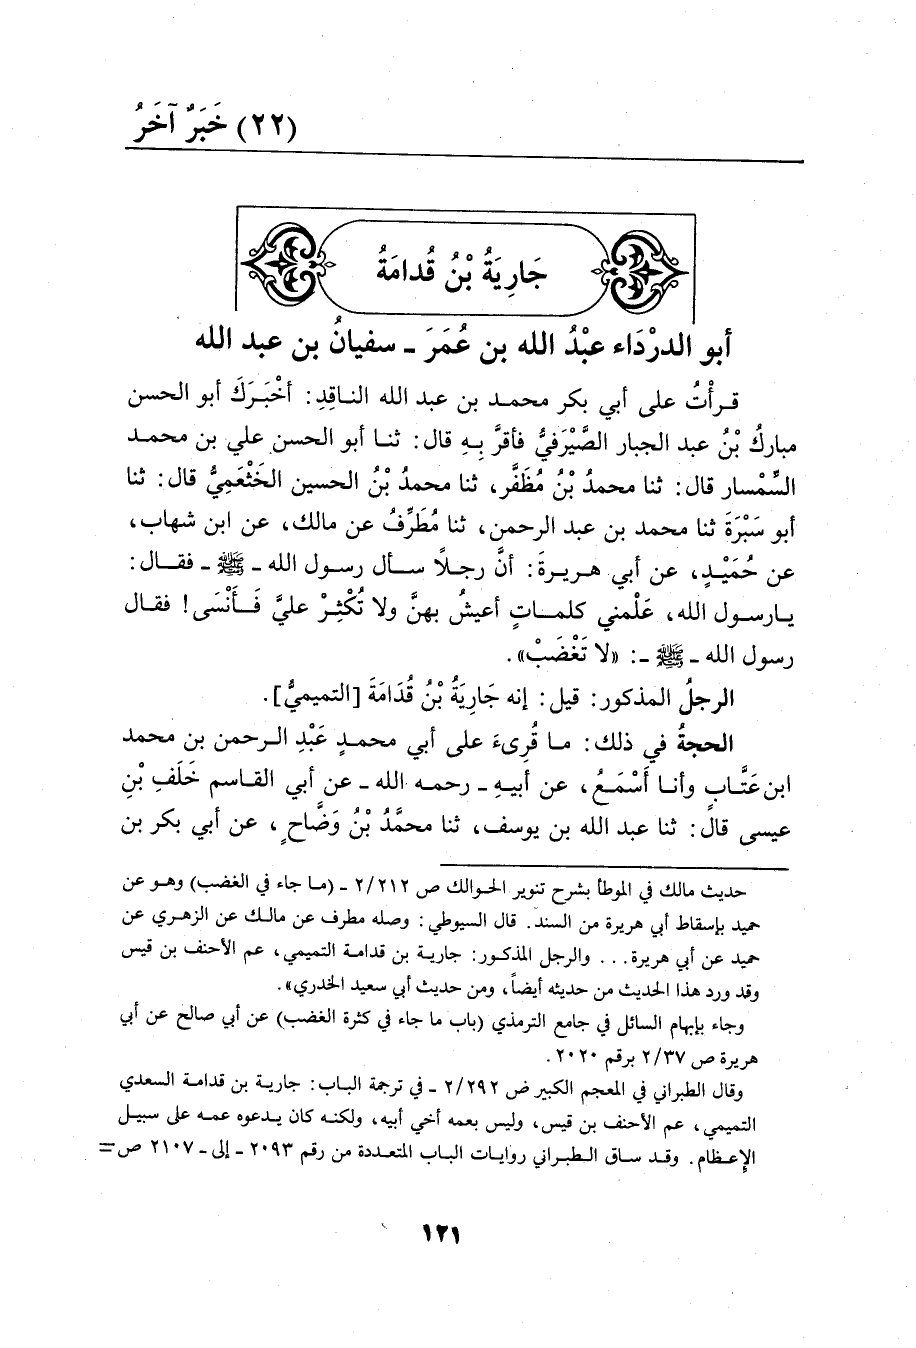 (٢٢) خَبَرٌ آخَرُ
جَارِيَةُ بْنُ قُدامَةُ
أبو الدرْدَاء عبْدُ الله بن عُمَرَ ـ سفيانُ بن عبد الله
قـرأْتُ على أبي بكر محمـد بن عبد الله الناقِدِ: أخْبَرَكَ أبو الحسن
مباركُ بْنُ عبد الجبار الصَّيْرَفيُّ فأقرَّ بِـهِ قال: ثنـا أبو الحسن علي بن محمـد
السِّمْسار قال: ثنا محمدُ بْنُ مُظَفَّر، ثنا محمدُ بْنُ الحسين الخَثْعَمِيُّ قال: ثنا
أبو سَبْرَةَ ثنا محمد بن عبد الرحمن، ثنا مُطَرِّفُ عن مالك، عن ابن شهاب،
عن حُمَيْـدٍ، عن أبي هـريـرةَ: أنَّ رجـلاً سـأل رسـول الله ـ ﷺ ـ فقـال:
يـارسـول الله، عَلِّمْني كلمـاتٍ أعيشُ بهنَّ ولا تُكْثِرْ عليَّ فَـأَنْسَى! فقال
رسول الله ـ ﷺ ـ: «لا تَغْضَبْ».
الرجلُ المذكور: قيل: إنه جَارِيَةُ بْنُ قُدَامَةَ [التميميُّ].
الحجةُ في ذلك: مـا قُرِىءَ على أبي محمـدٍ عَبْدِ الـرحمن بن محمد
ابن عَتَّـابٍ وأنـا أَسْمَـعُ، عن أبيهِ ـ رحمـه الله ـ عن أبي القـاسم خَلَفِ بْنِ
عيسى قالَ: ثنا عبد الله بن يوسف، ثنا محمَّدُ بْنُ وَضَّاحٍ، عن أبي بكر بن
حديث مالك في الموطأ بشرح تنوير الحوالك ص ٢/٢١٢ ـ (مـا جاء في الغضب) وهـو عن
حميد بإسقاط أبي هريرة من السند. قال السيوطي: وصله مطرف عن مالـك عن الزهري عن
حميد عن أبي هريرة... والرجل المذكـور: جارية بن قدامـة التميمي، عم الأحنف بن قيس
وقد ورد هذا الحديث من حديثه أيضاً، ومن حديث أبي سعيد الخدري».
وجاء بإبهام السائل في جامع الترمذي (باب ما جاء في كثرة الغضب) عن أبي صالح عن أبي
هريرة ص ٢/٣٧ برقم ٢٠٢٠.
وقال الطبراني في المعجم الكبير ص ٢/٢٩٢ ـ في ترجمة الباب: جارية بن قدامـة السعدي
التميمي، عم الأحنف بن قيس، وليس بعمه أخي أبيه، ولكنـه كان يـدعوه عمـه على سبيـل
الإعـظام. وقـد سـاق الـطبراني روايـات البـاب المتعـددة من رقم ٢٠٩٣ ـ إلى ـ ٢١٠٧ ص=
١٢١